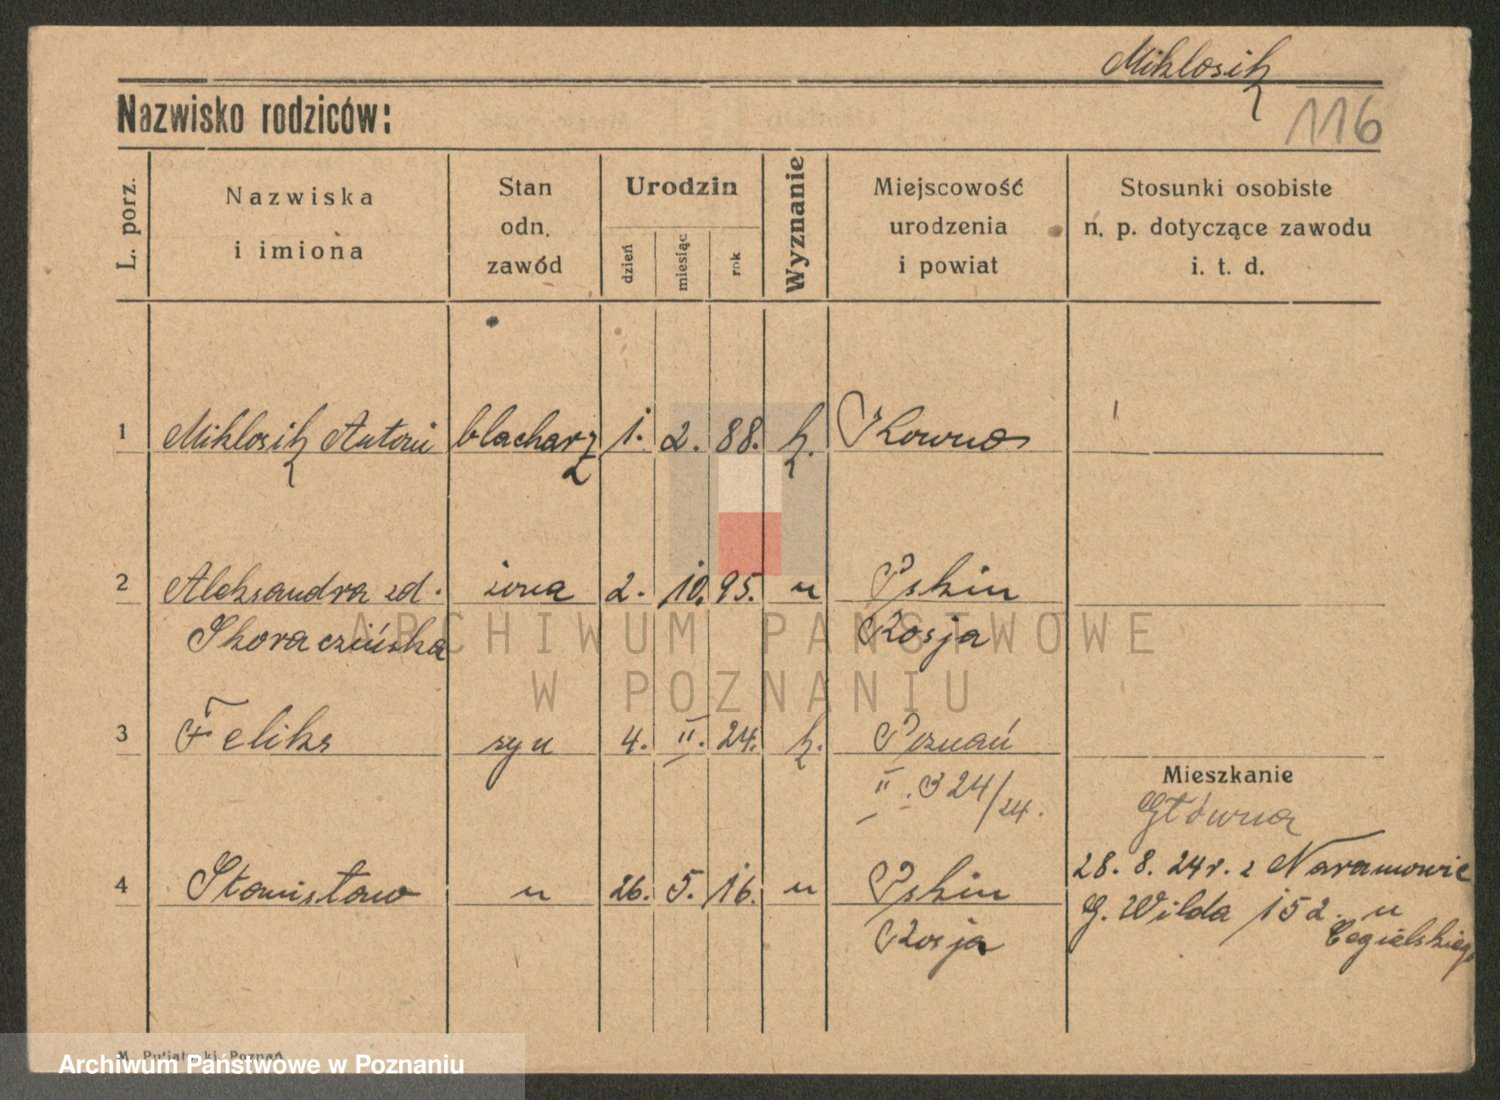 Miklosik
Nazwisko rodziców:
116
L. porz.
Nazwiska
i imiona
Stan
odn.
zawód
Urodzin
dzień
miesiąc
rok
Wyznanie
Miejscowość
urodzenia
i powiat
Stosunki osobiste
n. p. dotyczące zawodu
i. t. d.
1 Miklosik Antoni blacharz 1. 2. 88. k. Kowno
2 Aleksandra zd. żona 2. 10. 95. " Pskin
Skoraczińska Rosja
ARCHIWUM PAŃSTWOWE
W POZNANIU
3 Feliks syn 4. II. 24. k. Poznań
II. 324/24.
Mieszkanie
Główna
4 Stanisław " 26. 5. 16. " Pskin
Rosja
28. 8. 24r. z Naramowic
G. Wilda 152. u
Cegielskiego
Archiwum Państwowe w Poznaniu